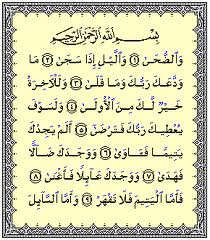 بِسْمِ ٱللَّهِ ٱلرَّحْمَٰنِ ٱلرَّحِيمِ
وَٱلضُّحَىٰ ١ وَٱلَّيْلِ إِذَا سَجَىٰ ٢ مَا
وَدَّعَكَ رَبُّكَ وَمَا قَلَىٰ ٣ وَلَلْآخِرَةُ
خَيْرٌ لَّكَ مِنَ ٱلْأُولَىٰ ٤ وَلَسَوْفَ
يُعْطِيكَ رَبُّكَ فَتَرْضَىٰٓ ٥ أَلَمْ يَجِدْكَ
يَتِيمًا فَـَٔاوَىٰ ٦ وَوَجَدَكَ ضَآلًّا
فَهَدَىٰ ٧ وَوَجَدَكَ عَآئِلًا فَأَغْنَىٰ ٨
فَأَمَّا ٱلْيَتِيمَ فَلَا تَقْهَرْ ٩ وَأَمَّا ٱلسَّآئِلَ